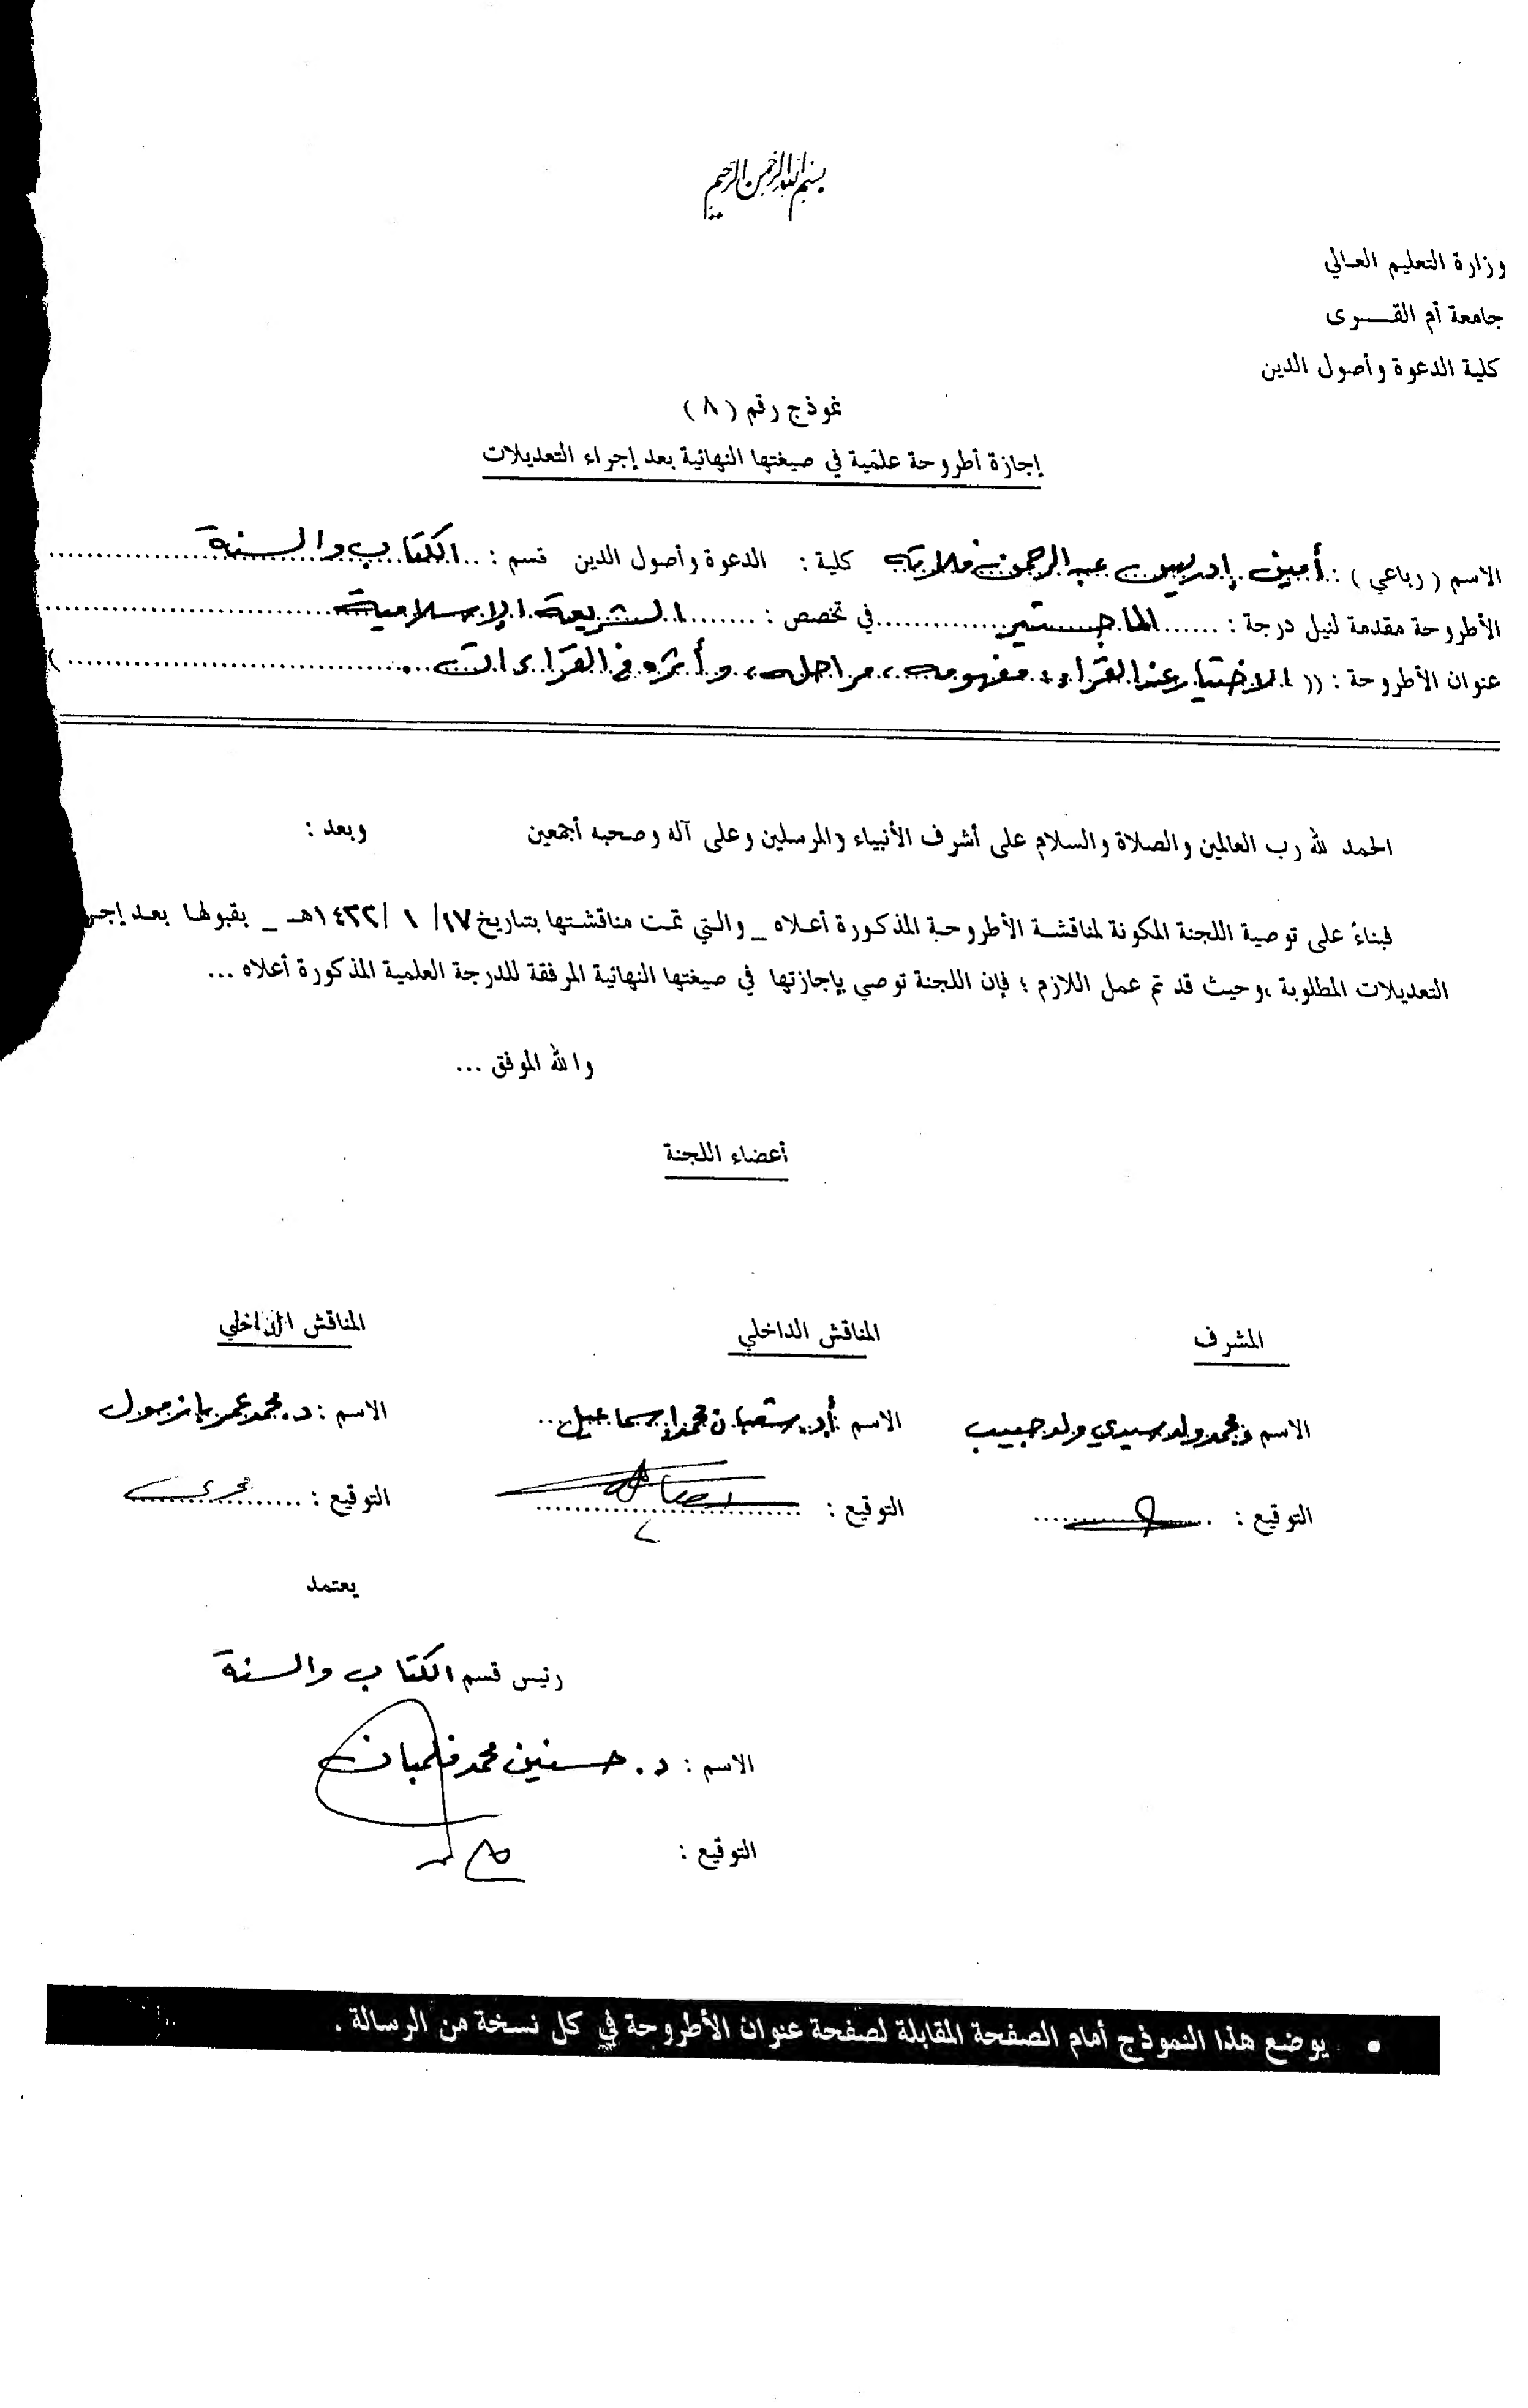 بسم الله الرحمن الرحيم
وزارة التعليم العالي
جامعة أم القرى
كلية الدعوة وأصول الدين
نموذج رقم (٨)
إجازة أطروحة علمية في صيغتها النهائية بعد إجراء التعديلات
الاسم (رباعي): أمين إدريس عبدالرحمن فلاته كلية: الدعوة وأصول الدين قسم: الكتاب والسنة
الأطروحة مقدمة لنيل درجة: الماجستير في تخصص: الشريعة الإسلامية
عنوان الأطروحة: (( الاختيار عند القراء، مفهومه، مراحله، وأثره في القراءات. )
الحمد لله رب العالمين والصلاة والسلام على أشرف الأنبياء والمرسلين وعلى آله وصحبه أجمعين وبعد:
فبناءً على توصية اللجنة المكونة لمناقشة الأطروحة المذكورة أعلاه _ والتي تمت مناقشتها بتاريخ ١٧/ ١ /١٤٢٢هـ _ بقبولها بعد إجر
التعديلات المطلوبة، وحيث قد تم عمل اللازم؛ فإن اللجنة توصي بإجازتها في صيغتها النهائية المرفقة للدرجة العلمية المذكورة أعلاه ...
والله الموفق ...
أعضاء اللجنة
المشرف المناقش الداخلي المناقش الداخلي
الاسم د. محمد ولد سيدي ولد حبيب الاسم: أ.د. شعبان محمد إسماعيل الاسم: د. محمد عمر بازمول
التوقيع: التوقيع: التوقيع:
يعتمد
رئيس قسم الكتاب والسنة
الاسم: د. حسنين محمد فلمبان
التوقيع:
• يوضع هذا النموذج أمام الصفحة المقابلة لصفحة عنوان الأطروحة في كل نسخة من الرسالة.